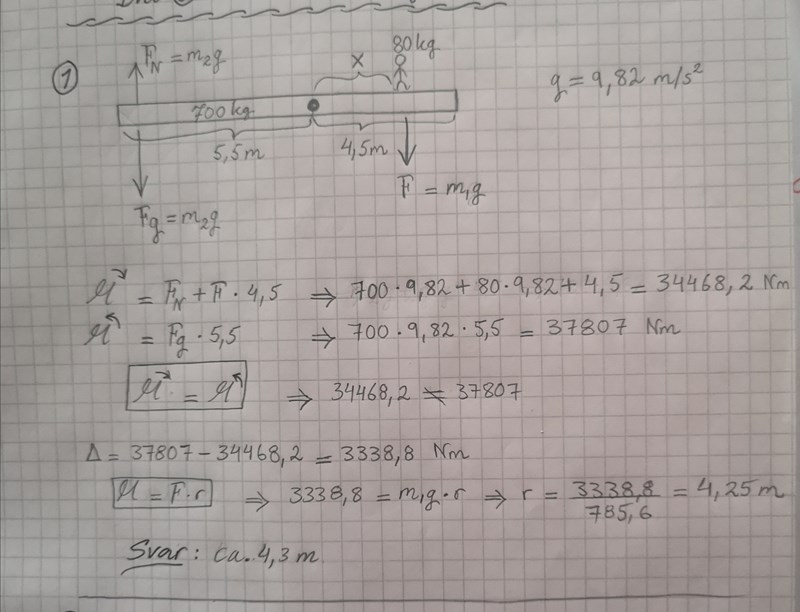 ① F_N = m₂g 80kg g = 9,82 m/s²
x
700kg
5,5m 4,5m
F = m₁g
Fg = m₂g
M↷ = F_N + F · 4,5 ⇒ 700 · 9,82 + 80 · 9,82 + 4,5 = 34468,2 Nm
M↶ = Fg · 5,5 ⇒ 700 · 9,82 · 5,5 = 37807 Nm
M↷ = M↶ ⇒ 34468,2 ≠ 37807
Δ = 37807 − 34468,2 = 3338,8 Nm
M = F · r ⇒ 3338,8 = m₁g · r ⇒ r = 3338,8 / 785,6 = 4,25 m
Svar: ca. 4,3 m